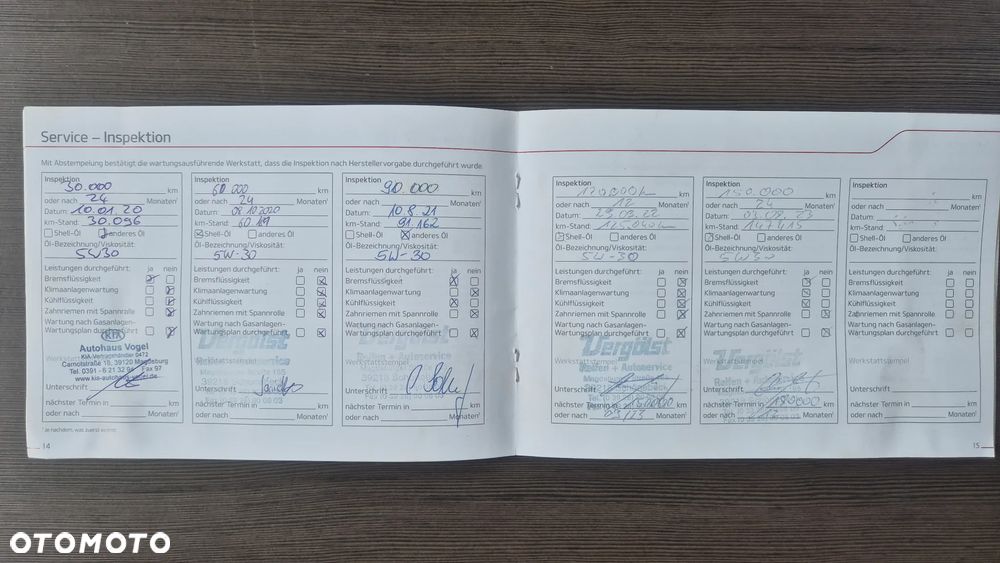 Service – Inspektion
Mit Abstempelung bestätigt die wartungsausführende Werkstatt, dass die Inspektion nach Herstellervorgabe durchgeführt wurde
Inspektion
30.000 km
oder nach 24 Monaten¹
Datum: 10.01.20
km-Stand: 30.096
Shell-Öl anderes Öl
Öl-Bezeichnung/Viskosität:
5W30
Leistungen durchgeführt: ja nein
Bremsflüssigkeit
Klimaanlagenwartung
Kühlflüssigkeit
Zahnriemen mit Spannrolle
Wartung nach Gasanlagen-
Wartungsplan durchgeführt
KIA
Autohaus Vogel
KIA-Vertragshändler 0472
39120 Magdeburg
Tel. 0391 - 6 21 32 Fax 97
Unterschrift
nächster Termin in km
oder nach Monaten¹
¹ Je nachdem, was zuerst eintritt
14
Inspektion
60.000 km
oder nach 24 Monaten¹
Datum: 08.10.2020
km-Stand:
Shell-Öl anderes Öl
Öl-Bezeichnung/Viskosität:
5W-30
Leistungen durchgeführt: ja nein
Bremsflüssigkeit
Klimaanlagenwartung
Kühlflüssigkeit
Zahnriemen mit Spannrolle
Wartung nach Gasanlagen-
Wartungsplan durchgeführt
Vergölst
Reifen + Autoservice
Werkstattstempel
Unterschrift
nächster Termin in km
oder nach Monaten¹
Inspektion
90.000 km
oder nach Monaten¹
Datum: 10.8.21
km-Stand: 91.162
Shell-Öl anderes Öl
Öl-Bezeichnung/Viskosität:
5W-30
Leistungen durchgeführt: ja nein
Bremsflüssigkeit
Klimaanlagenwartung
Kühlflüssigkeit
Zahnriemen mit Spannrolle
Wartung nach Gasanlagen-
Wartungsplan durchgeführt
Vergölst
Reifen + Autoservice
Unterschrift
nächster Termin in km
oder nach Monaten¹
Inspektion
km
oder nach 12 Monaten¹
Datum:
km-Stand:
Shell-Öl anderes Öl
Öl-Bezeichnung/Viskosität:
5W-30
Leistungen durchgeführt: ja nein
Bremsflüssigkeit
Klimaanlagenwartung
Kühlflüssigkeit
Zahnriemen mit Spannrolle
Wartung nach Gasanlagen-
Wartungsplan durchgeführt
Vergölst
Reifen + Autoservice
Werkstattstempel
Unterschrift
nächster Termin in km
oder nach 09/23 Monaten¹
Inspektion
150.000 km
oder nach 24 Monaten¹
Datum:
km-Stand: 147415
Shell-Öl anderes Öl
Öl-Bezeichnung/Viskosität:
5W30
Leistungen durchgeführt: ja nein
Bremsflüssigkeit
Klimaanlagenwartung
Kühlflüssigkeit
Zahnriemen mit Spannrolle
Wartung nach Gasanlagen-
Wartungsplan durchgeführt
Vergölst
Reifen + Autoservice
Werkstattstempel
Unterschrift
nächster Termin in 180000 km
oder nach Monaten¹
Inspektion
km
oder nach Monaten¹
Datum:
km-Stand:
Shell-Öl anderes Öl
Öl-Bezeichnung/Viskosität:
Leistungen durchgeführt: ja nein
Bremsflüssigkeit
Klimaanlagenwartung
Kühlflüssigkeit
Zahnriemen mit Spannrolle
Wartung nach Gasanlagen-
Wartungsplan durchgeführt
Werkstattstempel
Unterschrift
nächster Termin in km
oder nach Monaten¹
15
OTOMOTO